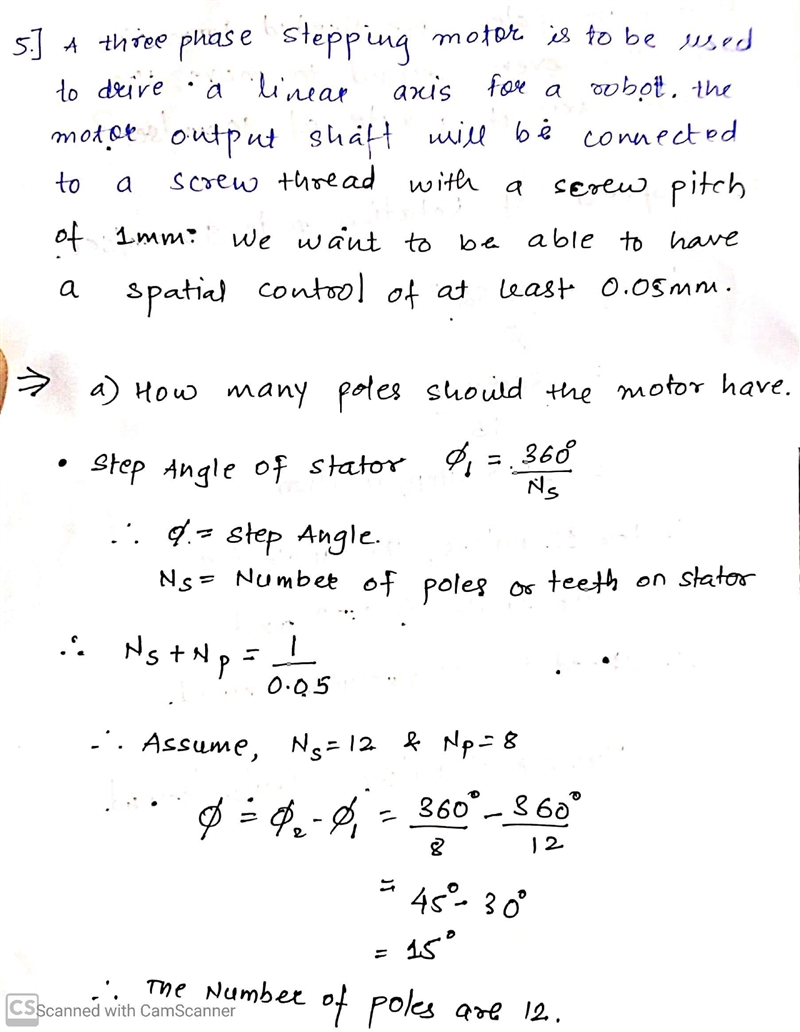 5.] A three phase stepping motor is to be used
to drive a linear axis for a robot. the
motor output shaft will be connected
to a screw thread with a screw pitch
of 1mm. We want to be able to have
a spatial control of at least 0.05mm.
⇒ a) How many poles should the motor have.
• Step Angle of stator ϕ₁ = 360°/Ns
∴ ϕ = Step Angle.
Ns = Number of poles or teeth on stator
∴ Ns + Np = 1/0.05
∴ Assume, Ns = 12 & Np = 8
∴ ϕ = ϕ₂ - ϕ₁ = 360°/8 - 360°/12
= 45° - 30°
= 15°
∴ The Number of poles are 12.
CS Scanned with CamScanner